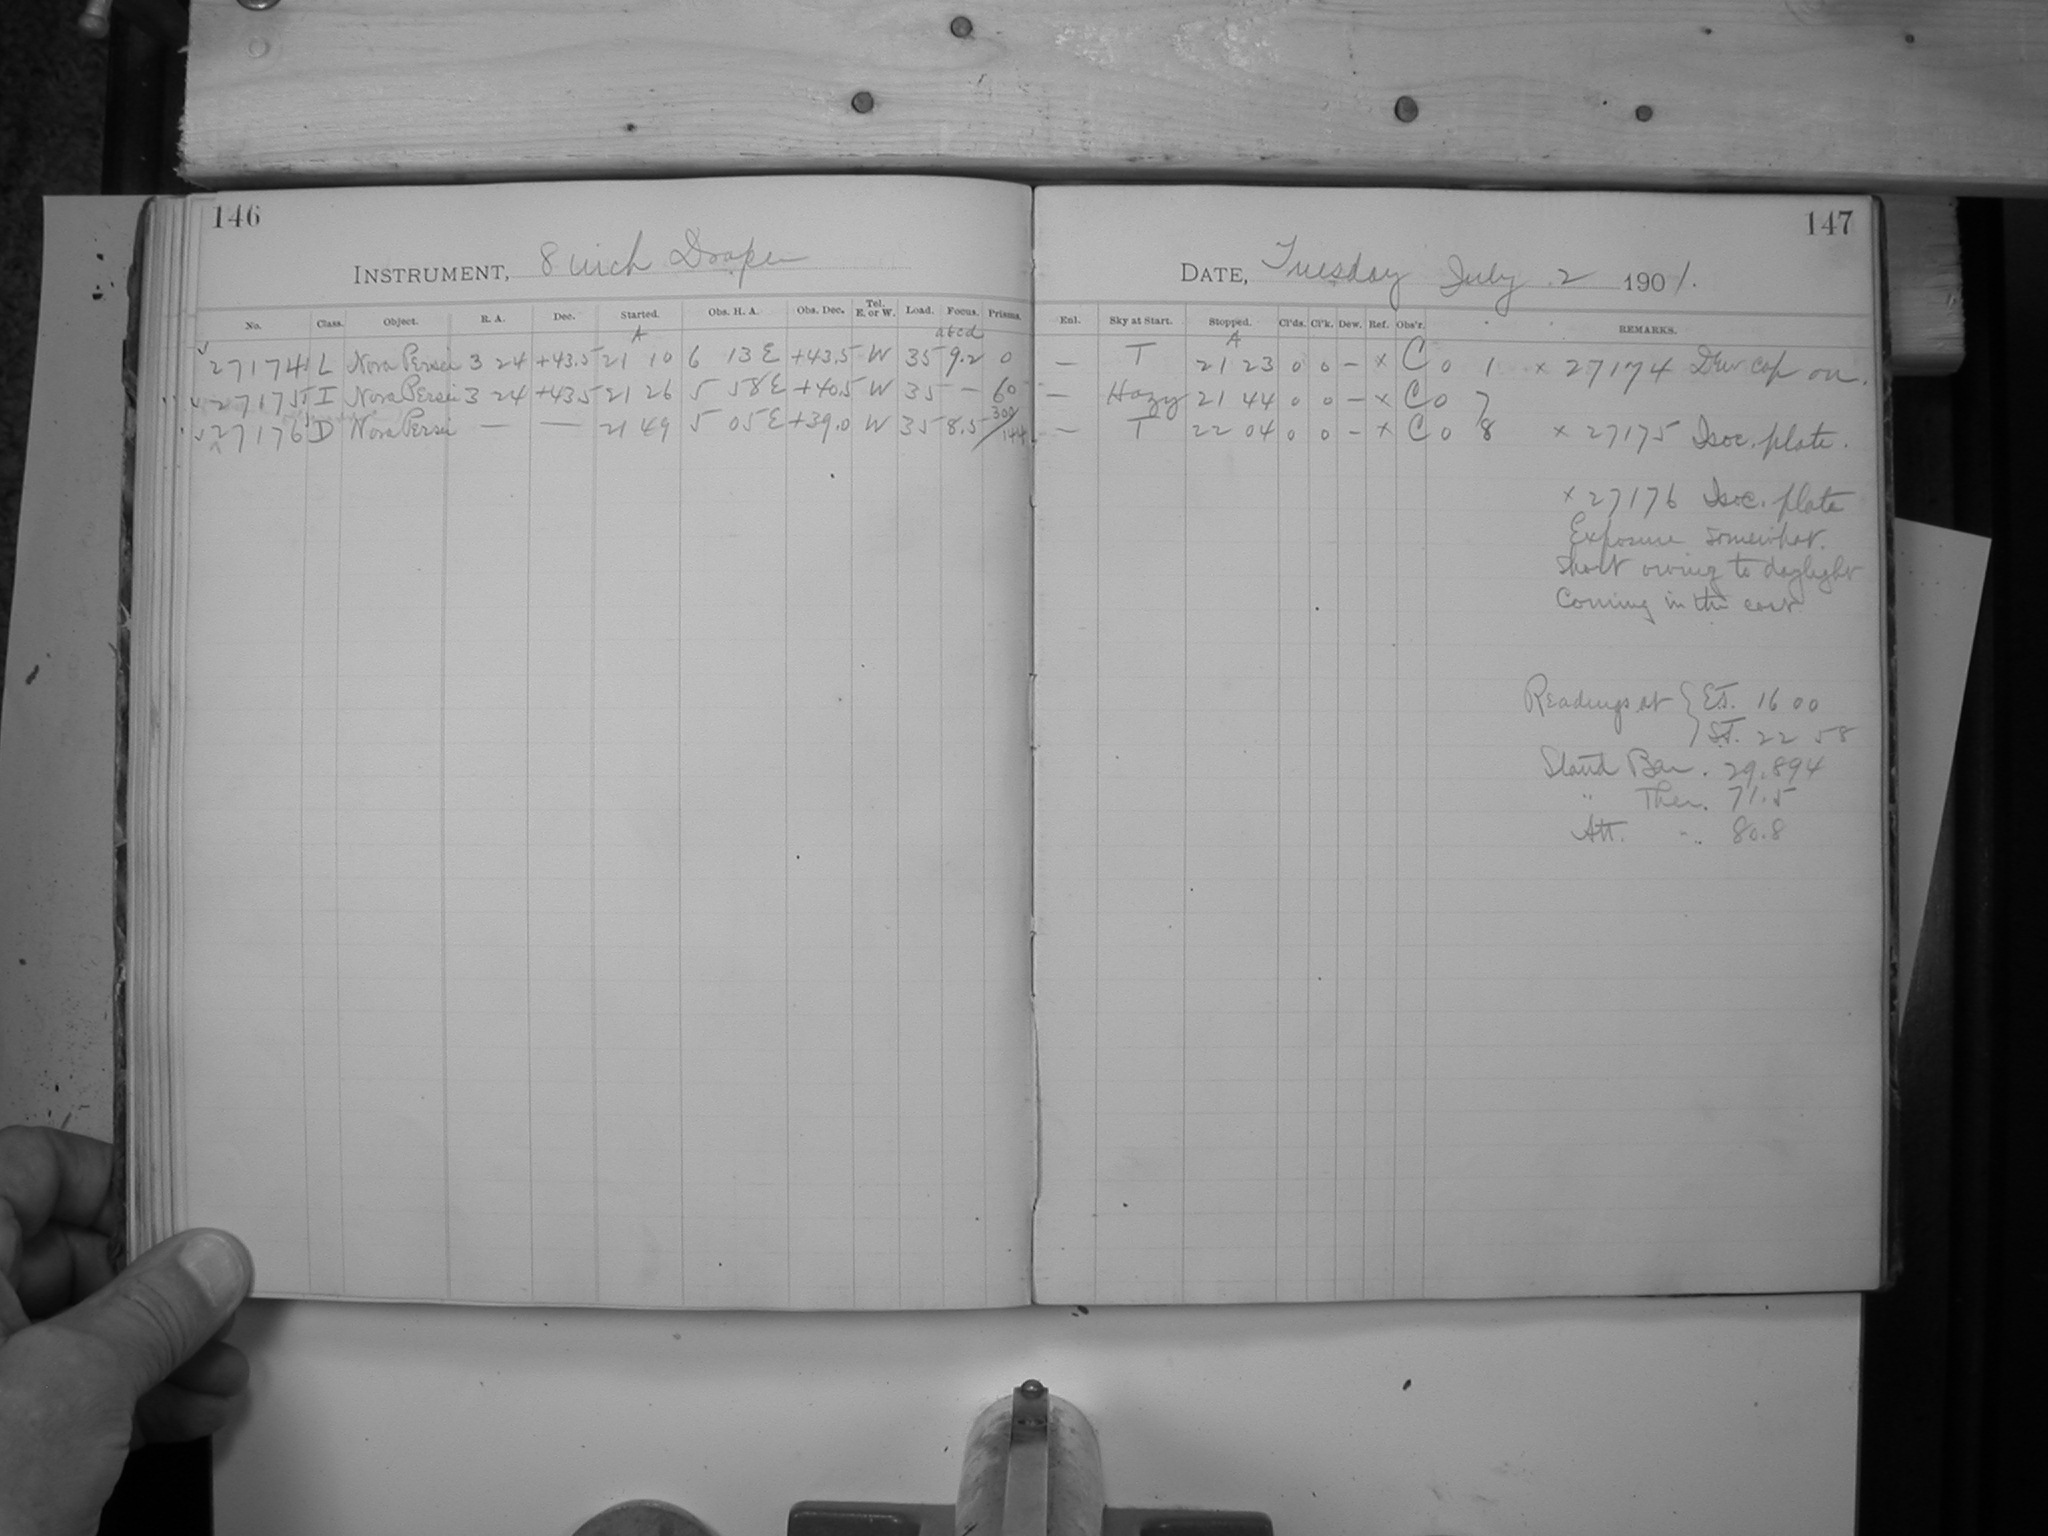 146
INSTRUMENT, 8 inch Draper
No. Class. Object. R. A. Dec. Started. Obs. H. A. Obs. Dec. Tel. E. or W. Load. Focus. Prisms.
A abcd
27174 L Nova Persei 3 24 +43.5 21 10 6 13 E +43.5 W 35 9.2 0
27175 I Nova Persei 3 24 +43.5 21 26 5 58 E +40.5 W 35 — 60
27176 D Nova Persei — — 21 49 5 05 E +39.0 W 35 8.5 300/144
147
DATE, Tuesday July 2 1901.
Enl. Sky at Start. Stopped. Cl'ds. Cl'k. Dew. Ref. Obs'r. REMARKS.
A
— T 21 23 0 0 – x C 0 1 x 27174 Dew cap on.
— Hazy 21 44 0 0 – x C 0 7
— T 22 04 0 0 – x C 0 8 x 27175 Isoc. plate.
x 27176 Isoc. plate
Exposure somewhat
short owing to daylight
coming in the east
Readings at { E.T. 16 00
S.T. 22 58
Stand Bar. 29.894
" Ther. 71.5
Att. " 80.8